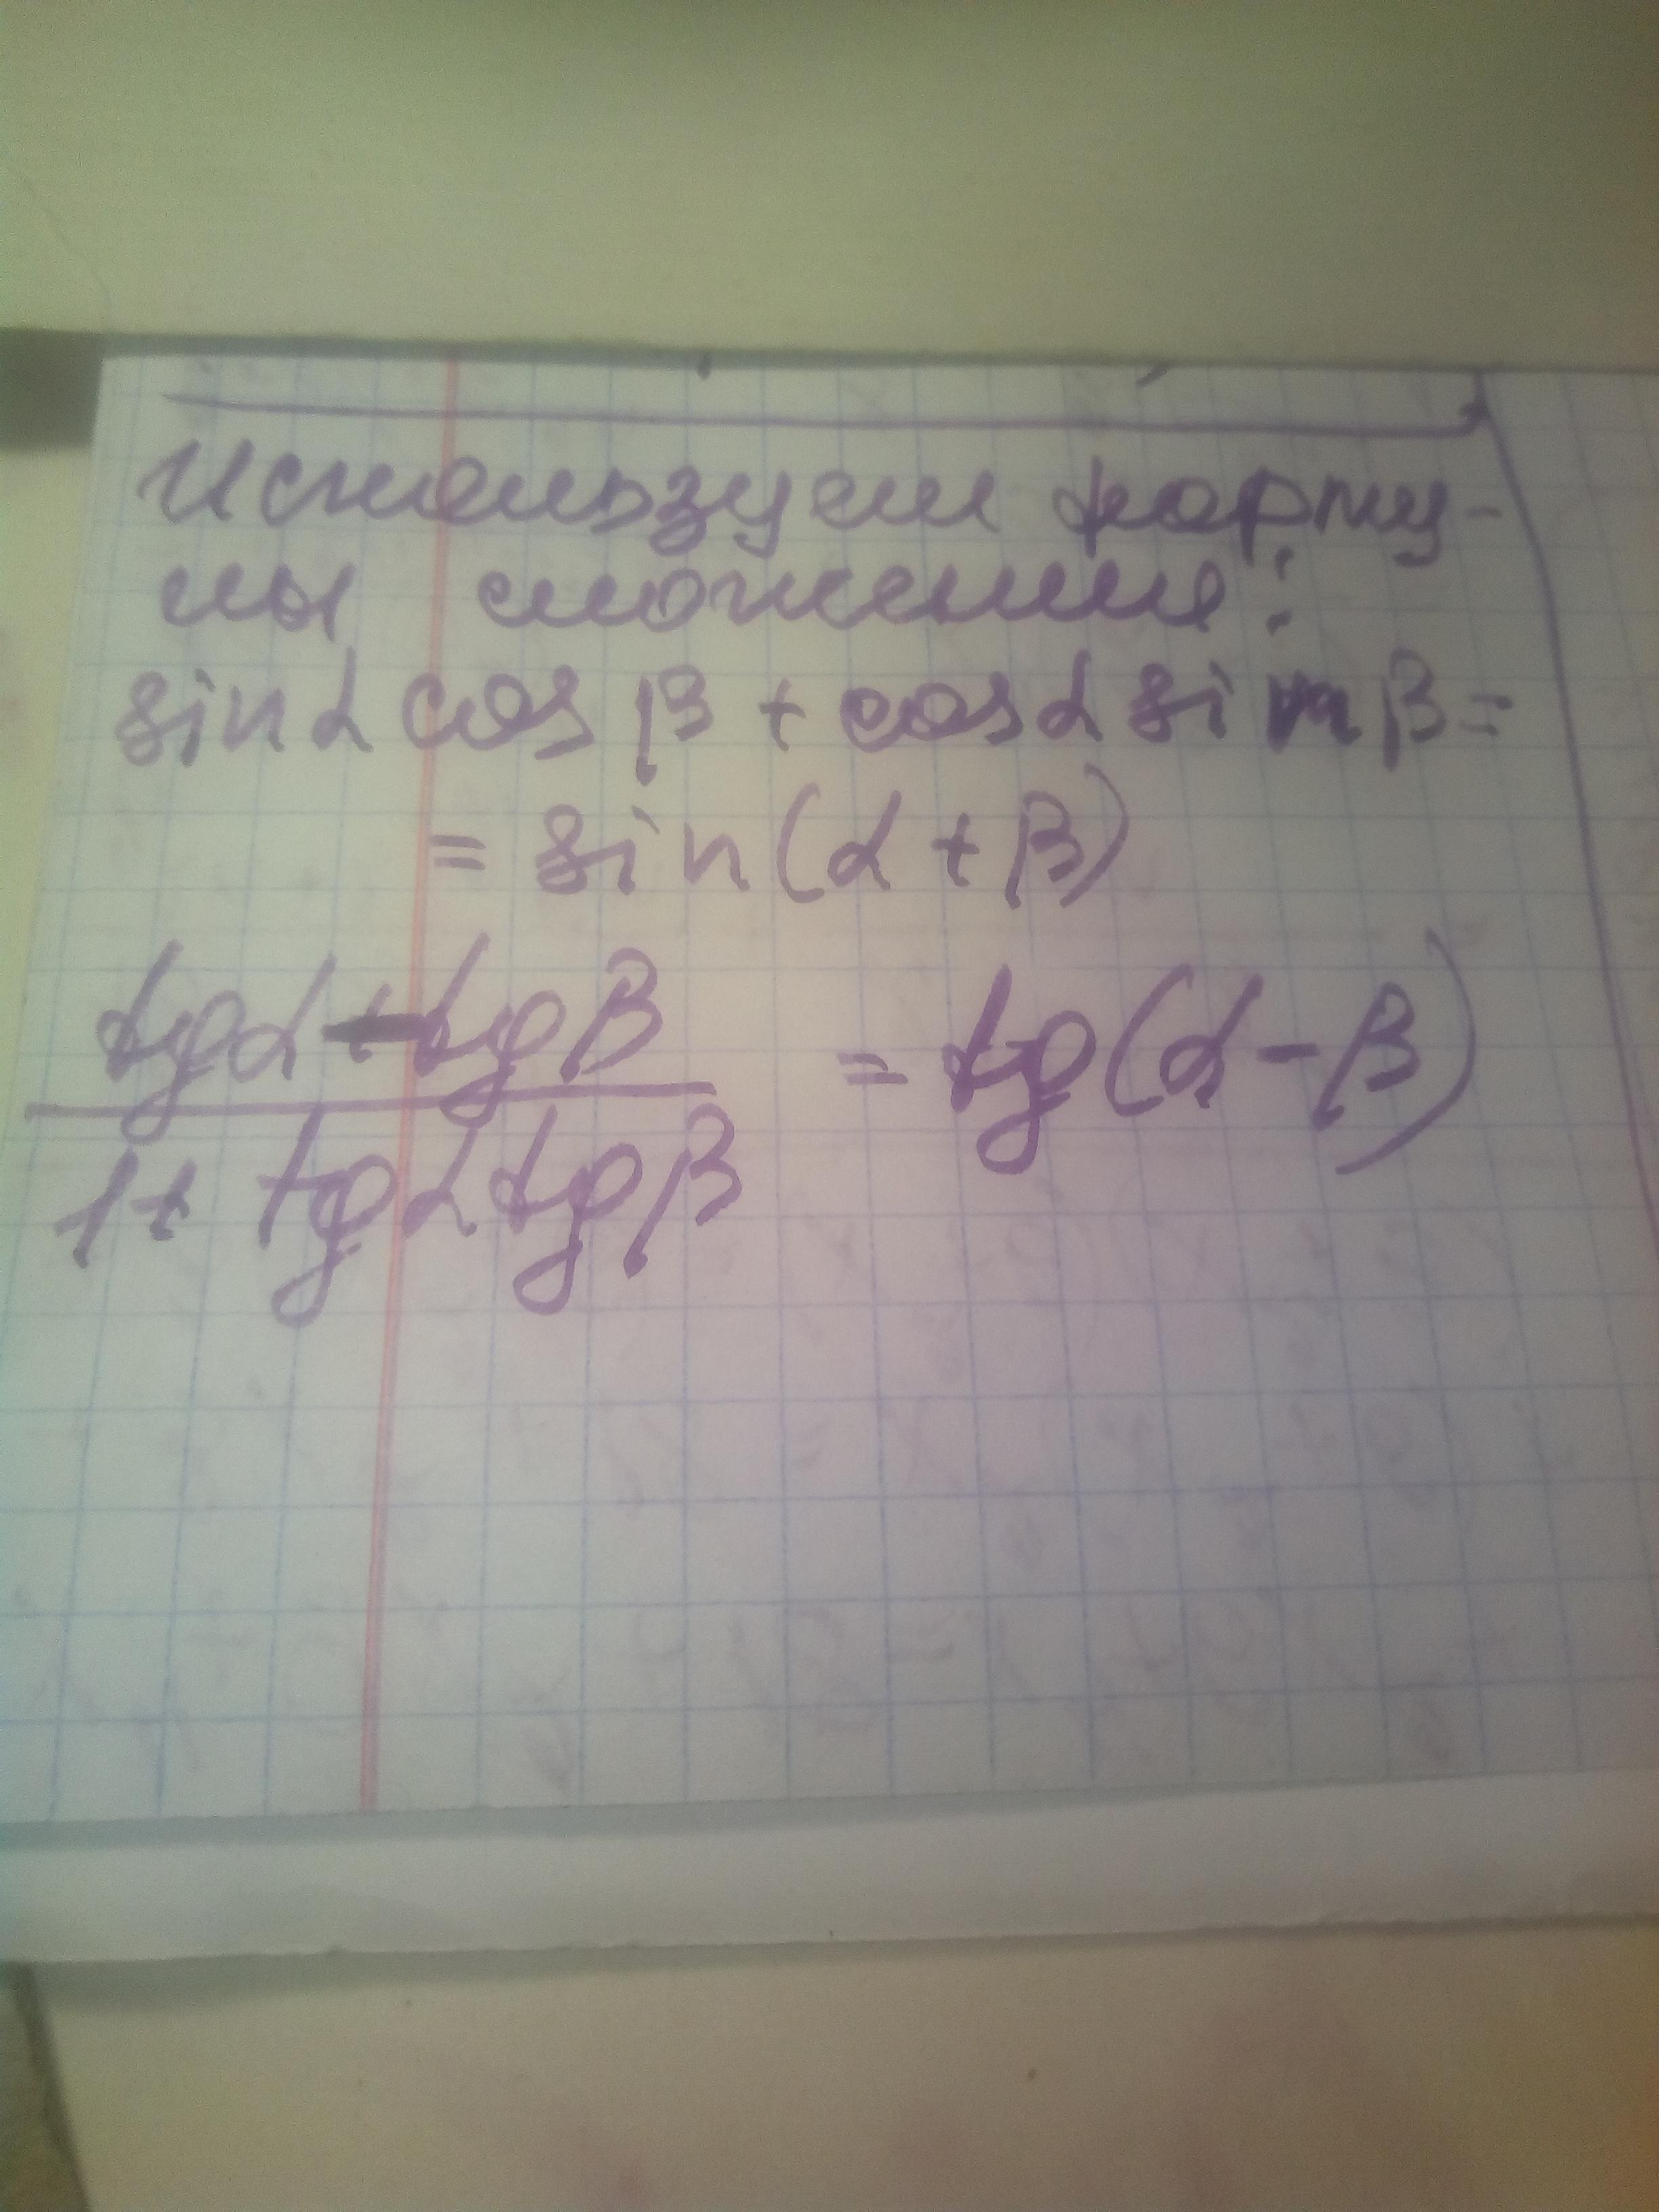 Используем форму-
лы сложения:
sin α cos β + cos α sin β =
= sin(α + β)
tg α - tg β
= tg(α - β)
1 + tg α tg β